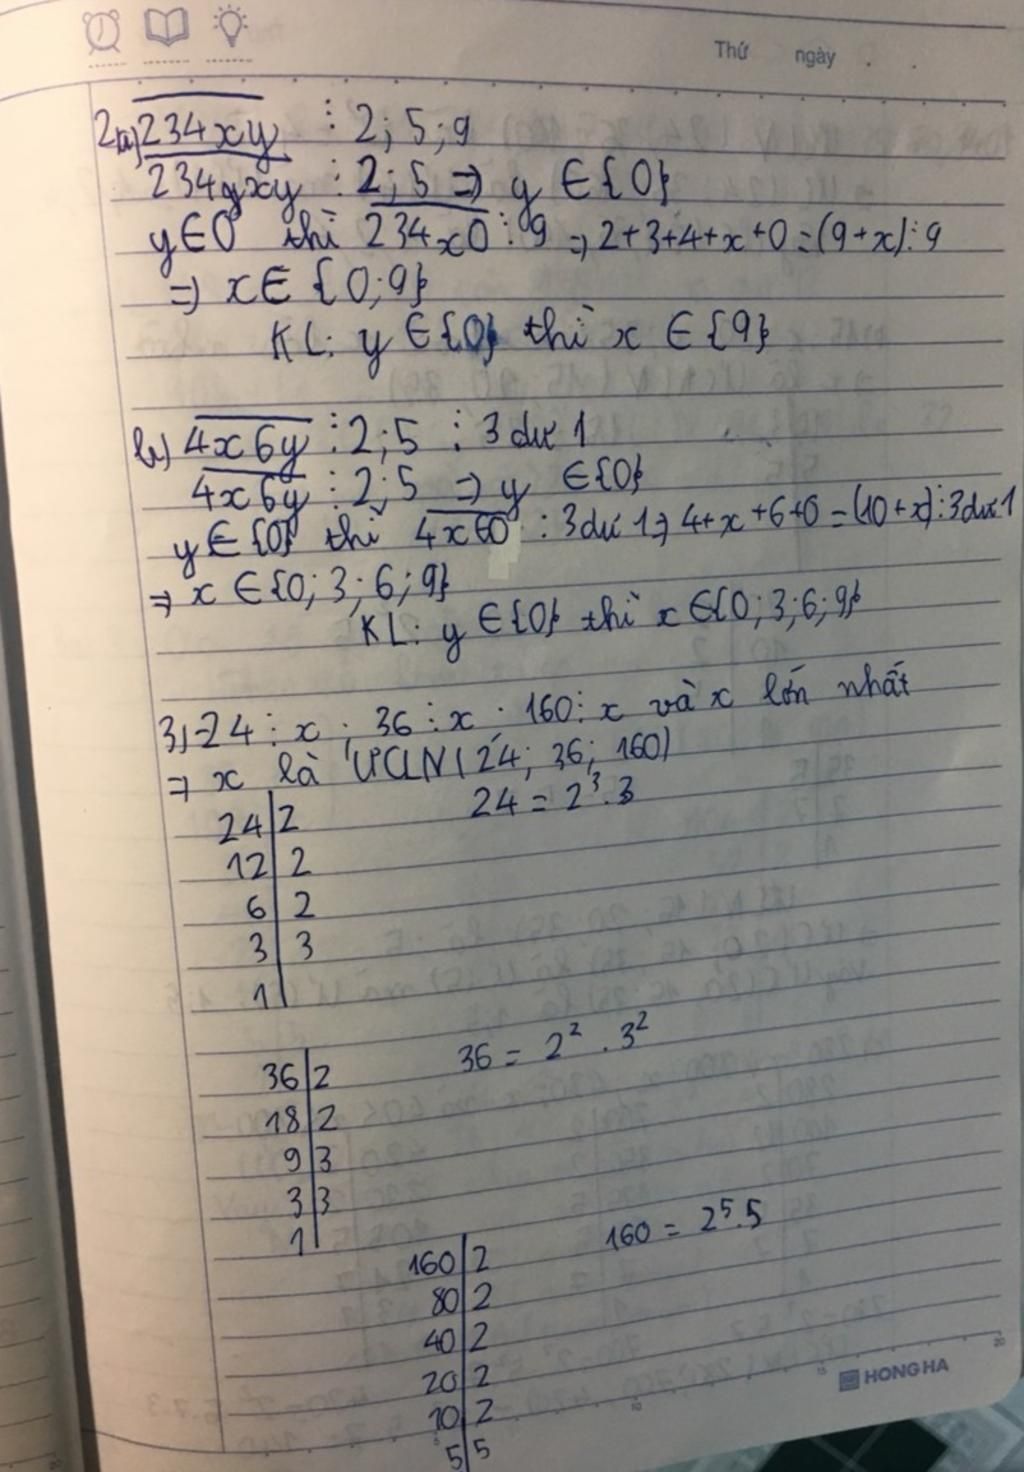 Thứ ngày
2a) 234xy ⋮ 2; 5; 9
234yxy ⋮ 2; 5 => y ∈ {0}
y ∈ 0 thì 234x0 ⋮ 9 => 2+3+4+x+0 = (9+x) ⋮ 9
=> x ∈ {0; 9}
KL: y ∈ {0} thì x ∈ {9}
b) 4x6y ⋮ 2; 5 : 3 dư 1
4x6y ⋮ 2; 5 => y ∈ {0}
y ∈ {0} thì 4x60 : 3 dư 1 => 4+x+6+0 = (10+x) : 3 dư 1
=> x ∈ {0; 3; 6; 9}
KL: y ∈ {0} thì x ∈ {0; 3; 6; 9}
3) 24 ⋮ x ; 36 ⋮ x ; 160 ⋮ x và x lớn nhất
=> x là ƯCLN (24; 36; 160)
24 | 2 24 = 2³.3
12 | 2
6 | 2
3 | 3
1
36 | 2 36 = 2² . 3²
18 | 2
9 | 3
3 | 3
1
160 | 2 160 = 2⁵.5
80 | 2
40 | 2
20 | 2
10 | 2
5 | 5
HONG HA